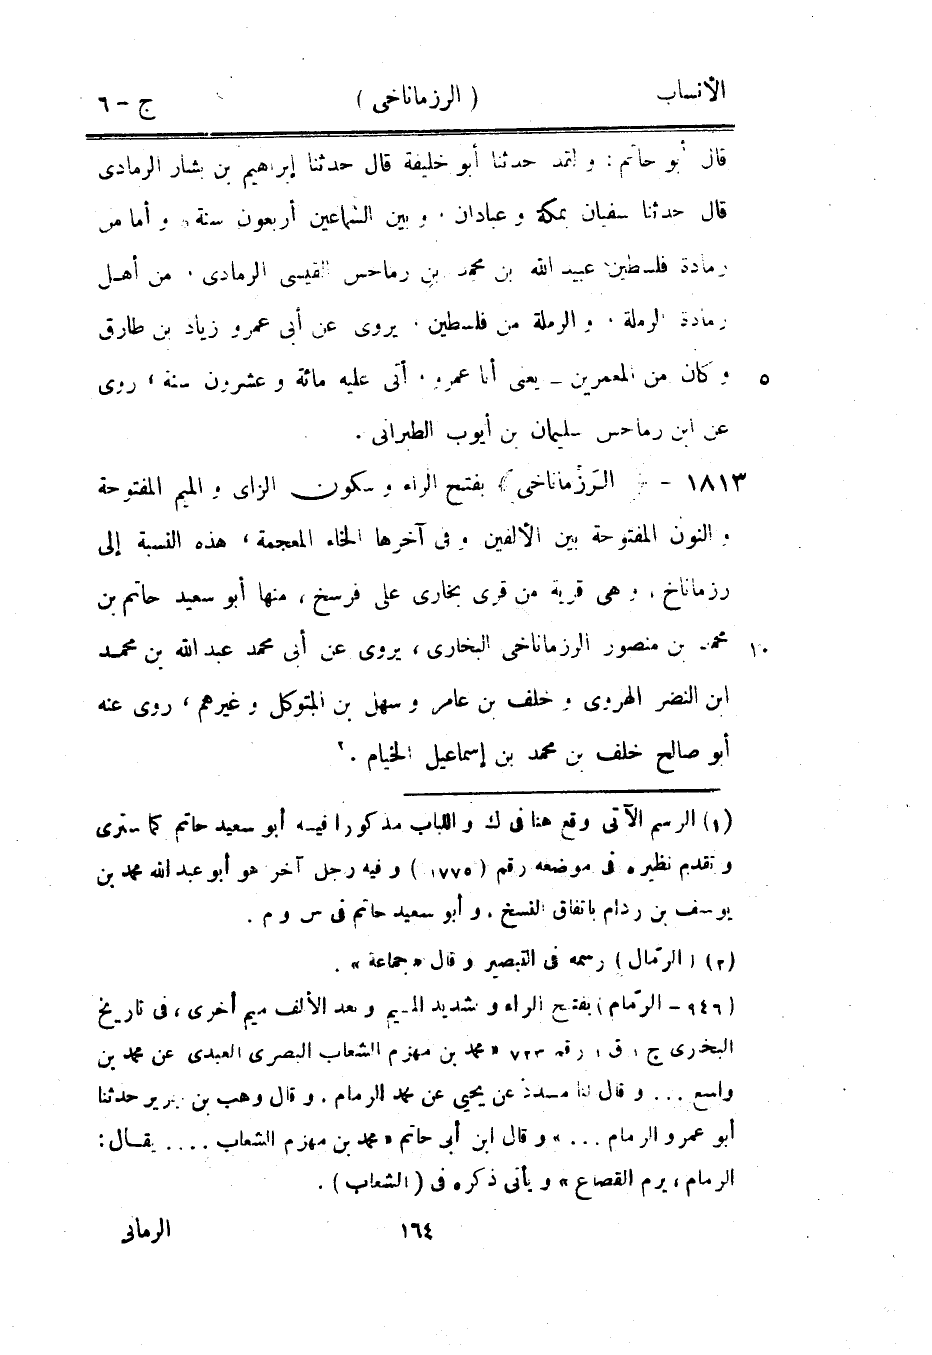 الأنساب ( الرزماناخى ) ج - ٦
قال أبو حاتم : و لقد حدثنا أبو خليفة قال حدثنا إبراهيم بن بشار الرمادى
قال حدثنا سفيان بمكة و عبادان ٠ و بين السماعين أربعون سنة . و أما من
رمادة فلسطين عبيد الله بن محمد بن رماحس القيسى الرمادى ٠ من أهل
رمادة الرملة ٠ و الرملة من فلسطين ٠ يروى عن أبى عمرو زياد بن طارق
و كان من المعمرين ـ يعنى أبا عمرو ٠ أتى عليه مائة و عشرون سنة ، روى ٥
عن ابن رماحس سليمان بن أيوب الطبرانى .
١٨١٣ - ﴿ الرَزْماناخى ﴾ بفتح الراء و سكون الزاى و الميم المفتوحة
و النون المفتوحة بين الألفين و فى آخرها الخاء المعجمة ، هذه النسبة إلى
رزماناخ . و هى قرية من قرى بخارى على فرسخ ، منها أبو سعيد حاتم بن
محمد بن منصور الرزماناخى البخارى ، يروى عن أبى محمد عبد الله بن محمد ١٠
ابن النضر الهروى و خلف بن عامر و سهل بن المتوكل و غيرهم ، روى عنه
أبو صالح خلف بن محمد بن إسماعيل الخيام .٢
(١) الرسم الآتى وقع هنا فى ك و اللباب مذكورا فيه أبو سعيد حاتم كما سترى
و تقدم نظيره فى موضعه رقم ( ١٧٧٥ ) و فيه رجل آخر هو أبو عبد الله محمد بن
يوسف بن ردام باتفاق النسخ . و أبو سعيد حاتم فى س و م .
(٢) ( الرمّال ) رسمه فى التبصير و قال « جماعة » .
(٩٤٦ - الرمّام ) بفتح الراء و تشديد الميم و بعد الألف ميم أخرى ، فى تاريخ
البخارى ج ١ ق ١ رقم ٧٢٣ « محمد بن مهزم الشعاب البصرى العبدى عن محمد بن
واسع ... و قال لنا مسدد عن يحيى عن محمد الرمام . و قال وهب بن جرير حدثنا
أبو عمرو الرمام ... » و قال ابن أبى حاتم « محمد بن مهزم الشعاب .... يقال :
الرمام ، يرم القصاع » و يأتى ذكره فى ( الشعاب ) .
١٦٤ الرمانى